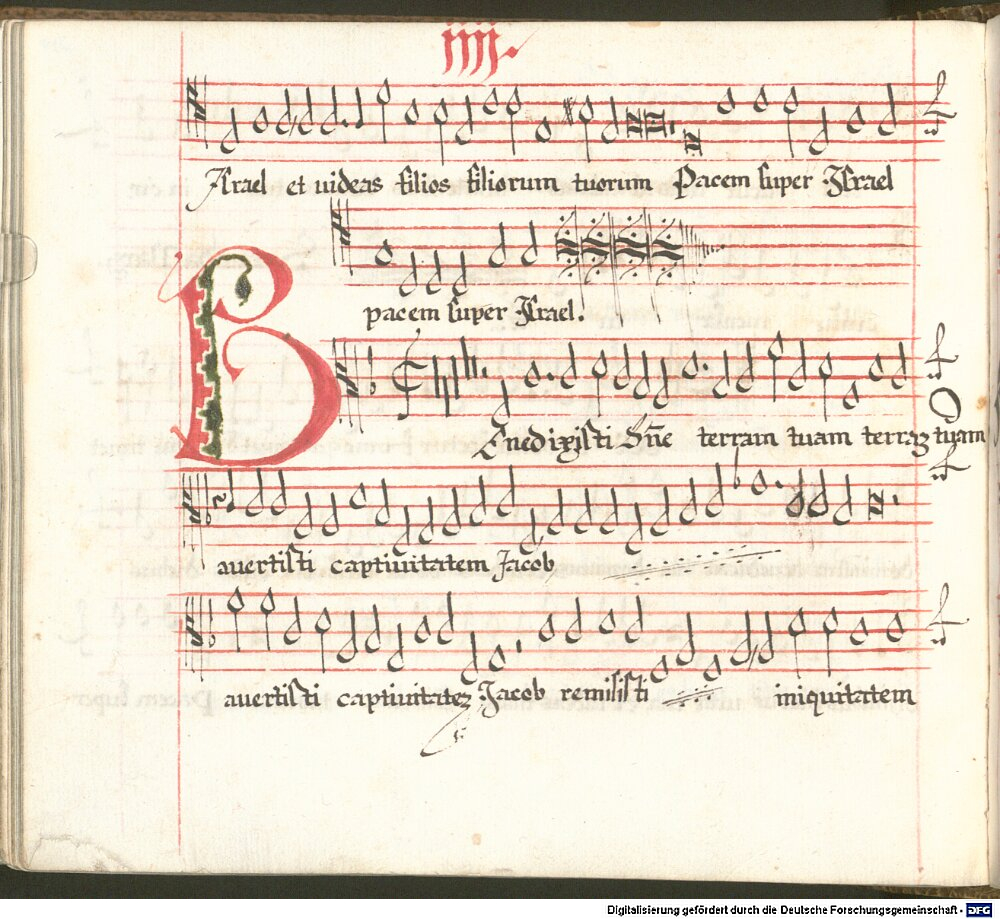 iiii.
Israel et uideas filios filiorum tuorum Pacem super Israel
pacem super Israel.
BEnedixisti Dñe terram tuam terraz tuam
auertisti captiuitatem Jacob
auertisti captiuitatez Jacob remisisti iniquitatem
Digitalisierung gefördert durch die Deutsche Forschungsgemeinschaft - DFG